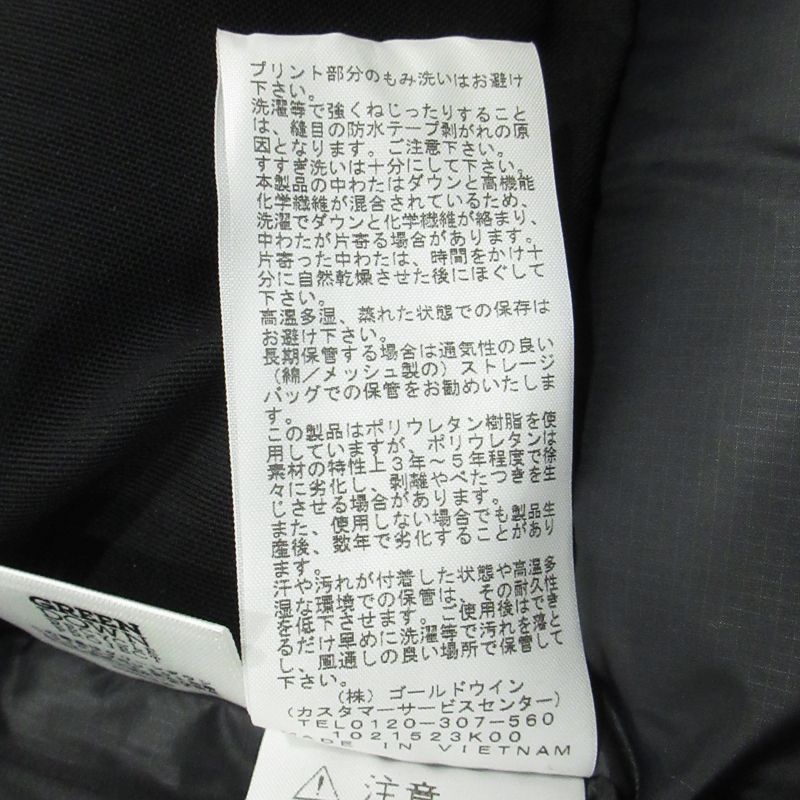 プリント部分のもみ洗いはお避け
下さい。
洗濯等で強くねじったりすること
は、縫目の防水テープ剥がれの原
因となります。ご注意下さい。
すすぎ洗いは十分にして下さい。
本製品の中わたはダウンと高機能
化学繊維が混合されているため、
洗濯でダウンと化学繊維が絡まり、
中わたが片寄る場合があります。
片寄った中わたは、時間をかけ十
分に自然乾燥させた後にほぐして
下さい。
高温多湿、蒸れた状態での保存は
お避け下さい。
長期保管する場合は通気性の良い
(綿/メッシュ製の)ストレージ
バッグでの保管をお勧めいたしま
す。
この製品はポリウレタン樹脂を使
用していますが、ポリウレタンは
素材の特性上3年~5年程度で徐
々に劣化し、剥離やべたつきを生
じさせる場合があります。
また、使用しない場合でも製品生
産後、数年で劣化することがあり
ます。
汗や汚れが付着した状態や高温多
湿な環境での保管は、その耐久性
を低下させます。ご使用後はでき
るだけ早めに洗濯等で汚れを落と
し、風通しの良い場所で保管して
下さい。
(株)ゴールドウイン
(カスタマーサービスセンター)
TEL0120-307-560
1021523K00
MADE IN VIETNAM
注意
GREEN
DOWN